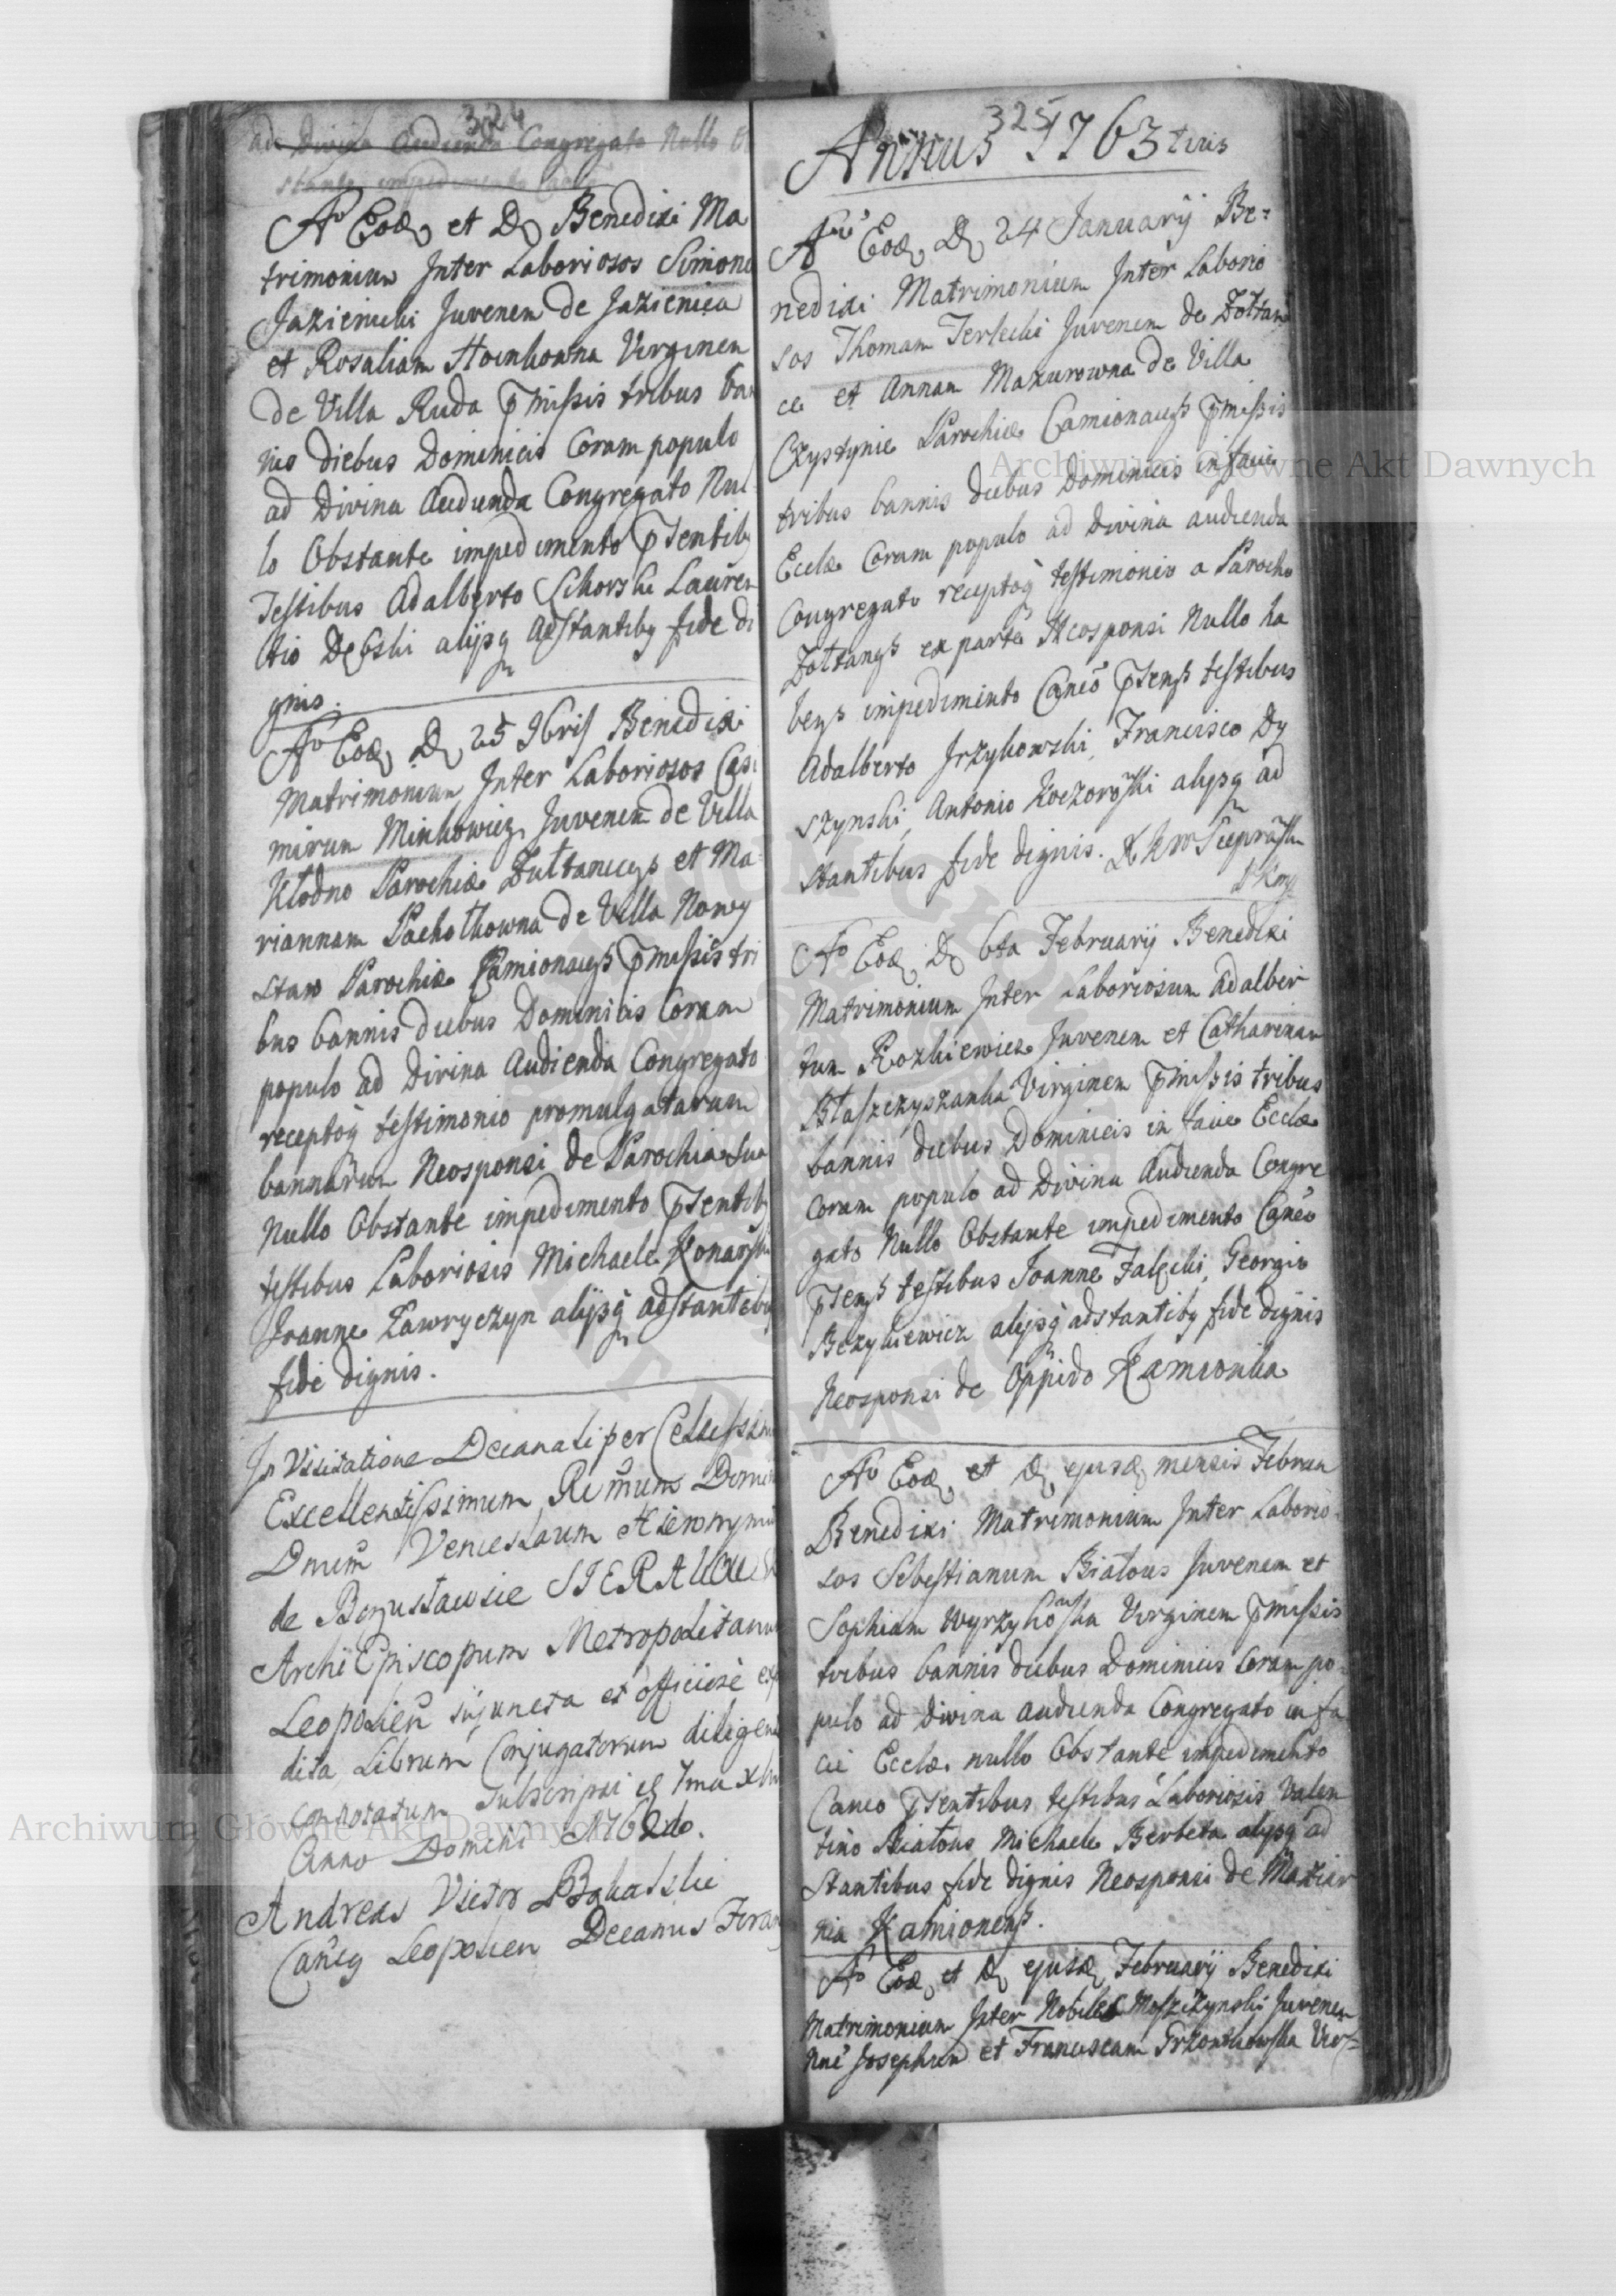 324
ad Divina Audienda Congregato Nullo
stante impedimento
Ao Eod et D Benedixi Ma
trimonium Inter Laboriosos Simone
Jazienicki Juvenem de Jazienica
et Rosaliam Hoinkowna Virginem
de Villa Ruda pmissis tribus ban
nis diebus Dominicis Coram populo
ad Divina Audienda Congregato Nul
lo Obstante impedimento psentib
Testibus Adalberto Sikorski Lauren
tio Dębski alijsq adstantibq fide di
gnis.
Ao Eod D 25 9bris Benedixi
Matrimonium Inter Laboriosos Casi
mirum Minkowicz Juvenem de Villa
Kłodno Parochiæ Zułtancys et Ma
riannam Pachołkowna de Villa Nowy
Staw Parochiæ Camionacys pmissis tri
bus bannis diebus Dominicis Coram
populo ad Divina Audienda Congregato
receptoq testimonio promulgatarum
bannarum Neosponsi de Parochia sua
Nullo Obstante impedimento psentib
testibus Laboriosis Michaele Konarski
Joanne Ławryczyn alijsq adstantibq
fide dignis.
In Visitatione Decanali per Celsissim
Excellentissimum Rmum Domin
Dnum Venceslaum Hieronymu
de Bogusławice SIERAKOW
Archi Episcopum Metropolitanum
Leopolien injuncta et officiose exp
dita Librum Conjugatorum diligen
connotatum Subscripsi 7ma Xbr
Anno Domini 1762do.
Andreas Victor
Cancq Leopolien Decanus Foran
325
Annus 1763tius
Ao Eod D 24 Januarij Be=
nedixi Matrimonium Inter Laborio
sos Thomam Terlecki Juvenem de Zołtan
ce et Annam Mazurowna de Villa
Czystynie Parochiæ Camionacys pmissis
tribus bannis diebus Dominicis in facie
Eccle Coram populo ad Divina audienda
Congregato receptoq testimonio a Parocho
Zołtancys ex parte Neosponsi Nullo ha
bens impedimento Canco psens testibus
Adalberto Jrzykowski, Francisco Dy
szynski, Antonio Koczorowski alijsq ad
stantibus fide dignis.
Ao Eod D 6ta Februarij Benedixi
Matrimonium Inter Laboriosum Adalber
tum Rozkiewicz Juvenem et Catharinam
Błaszczyszanka Virginem pmissis tribus
bannis diebus Dominicis in facie Eccle
Coram populo ad Divina Audienda Congre
gato Nullo Obstante impedimento Canco
psens testibus Joanne Falęcki, Georgio
Bezykiewicz alijsq adstantibq fide dignis
Neosponsi de Oppido Kamionka
Ao Eod et D ejusd mensis Februar
Benedixi Matrimonium Inter Laborio
sos Sebestianum Białous Juvenem et
Sophiam Wyrzykowska Virginem pmissis
tribus bannis diebus Dominicis Coram po
pulo ad Divina audienda Congregato in fa
cie Eccle nullo Obstante impedimento
Canco psentibus testibus Laboriosis Valen
tino Białous Michaele Berbeta alijsq ad
stantibus fide dignis Neosponsi de Maziar
nia Kamionens.
Ao Eod et D ejusd Februarij Benedixi
Matrimonium Inter Nobiles Moszczynski Juvenem
Josephum et Franciscam Vir=
Archiwum Główne Akt Dawnych
Archiwum Główne Akt Dawnych